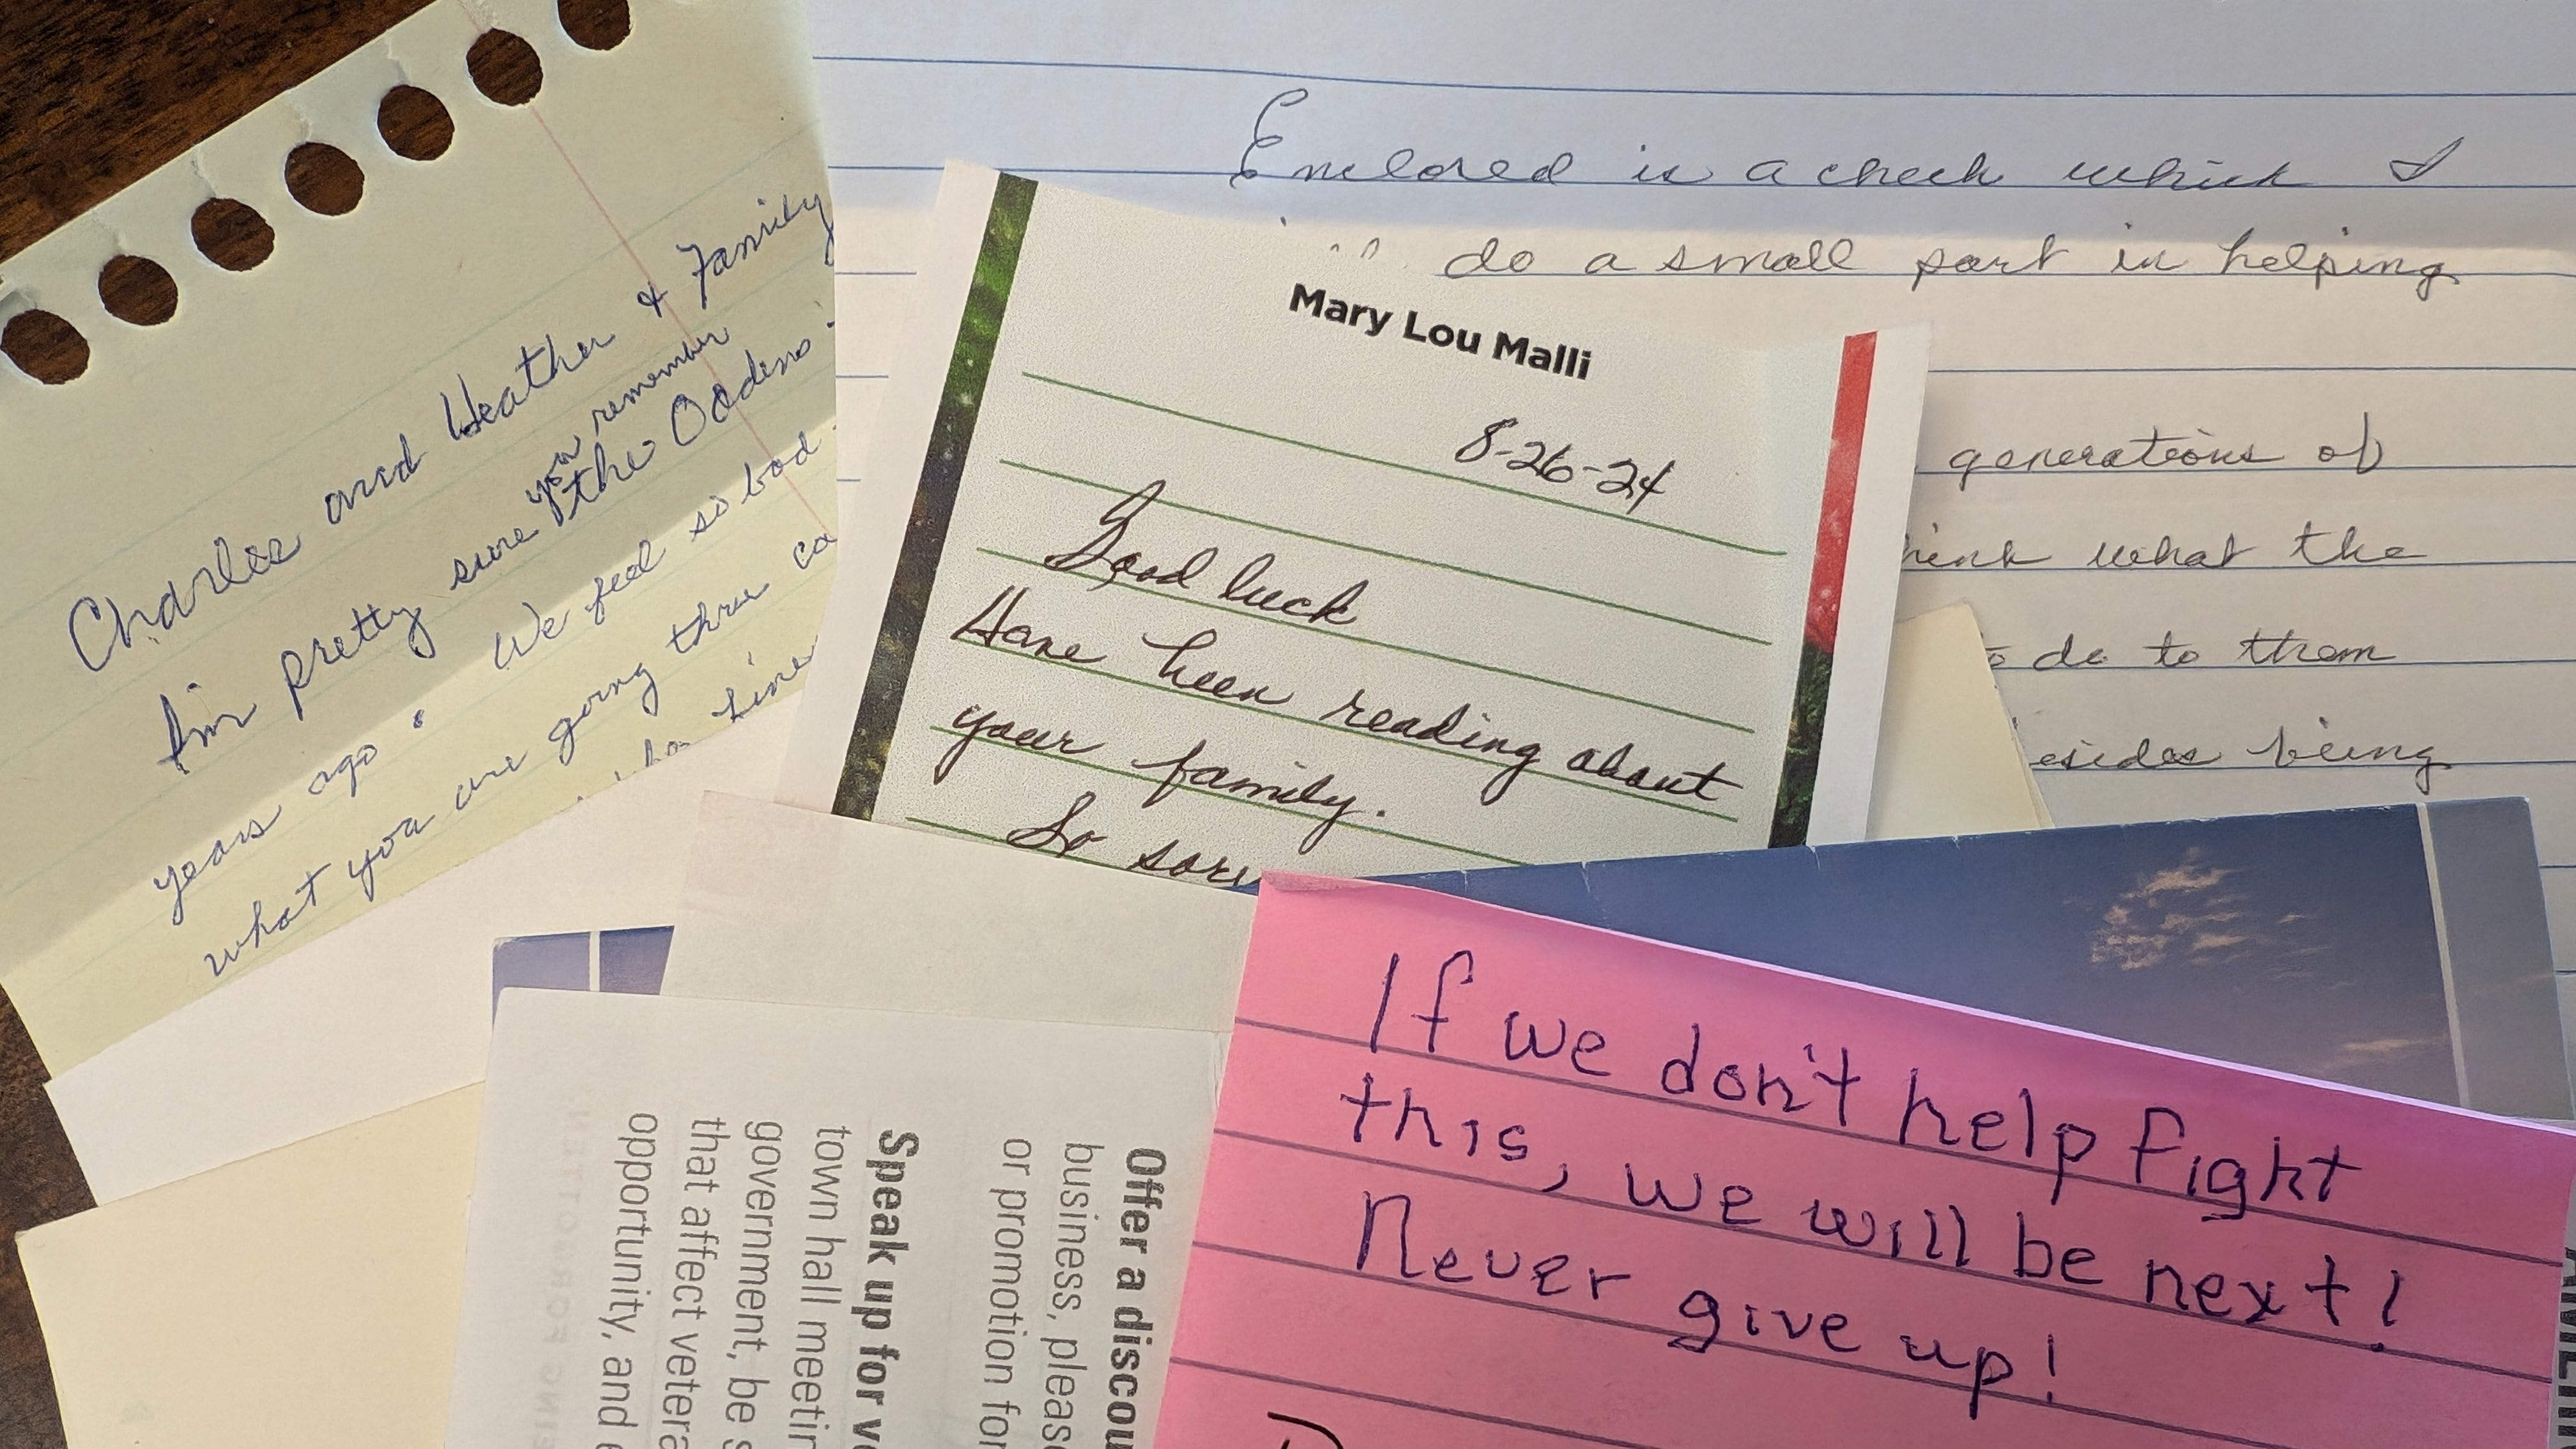 Charles and Heather & Family
I'm pretty sure you remember
the Oddens
years ago. We feel so bad
what you are going thru
Line
Enclosed is a check which I
do a small part in helping
generations of
what the
do to them
being
Mary Lou Malli
8-26-24
Good luck
Have been reading about
your family.
So
If we don't help fight
this, we will be next!
Never give up!
Offer a
business,
or promotion for
Speak up for
town hall
government, be
that affect
opportunity, and